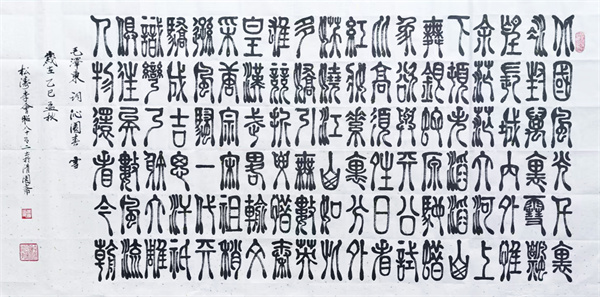 北國風光千裏
冰封萬裏雪飄
望長城內外惟
余莽莽大河上
下頓失滔滔山
舞銀蛇原馳蠟
象欲與天公試
比高須晴日看
紅裝素裹分外
妖嬈江山如此
多嬌引無數英
雄競折腰惜秦
皇漢武略輸文
采唐宗宋祖稍
遜風騷一代天
驕成吉思汗祇
識彎弓射大雕
俱往矣數風流
人物還看今朝
毛澤東詞沁園春雪
歲在乙巳孟秋
松濤李會